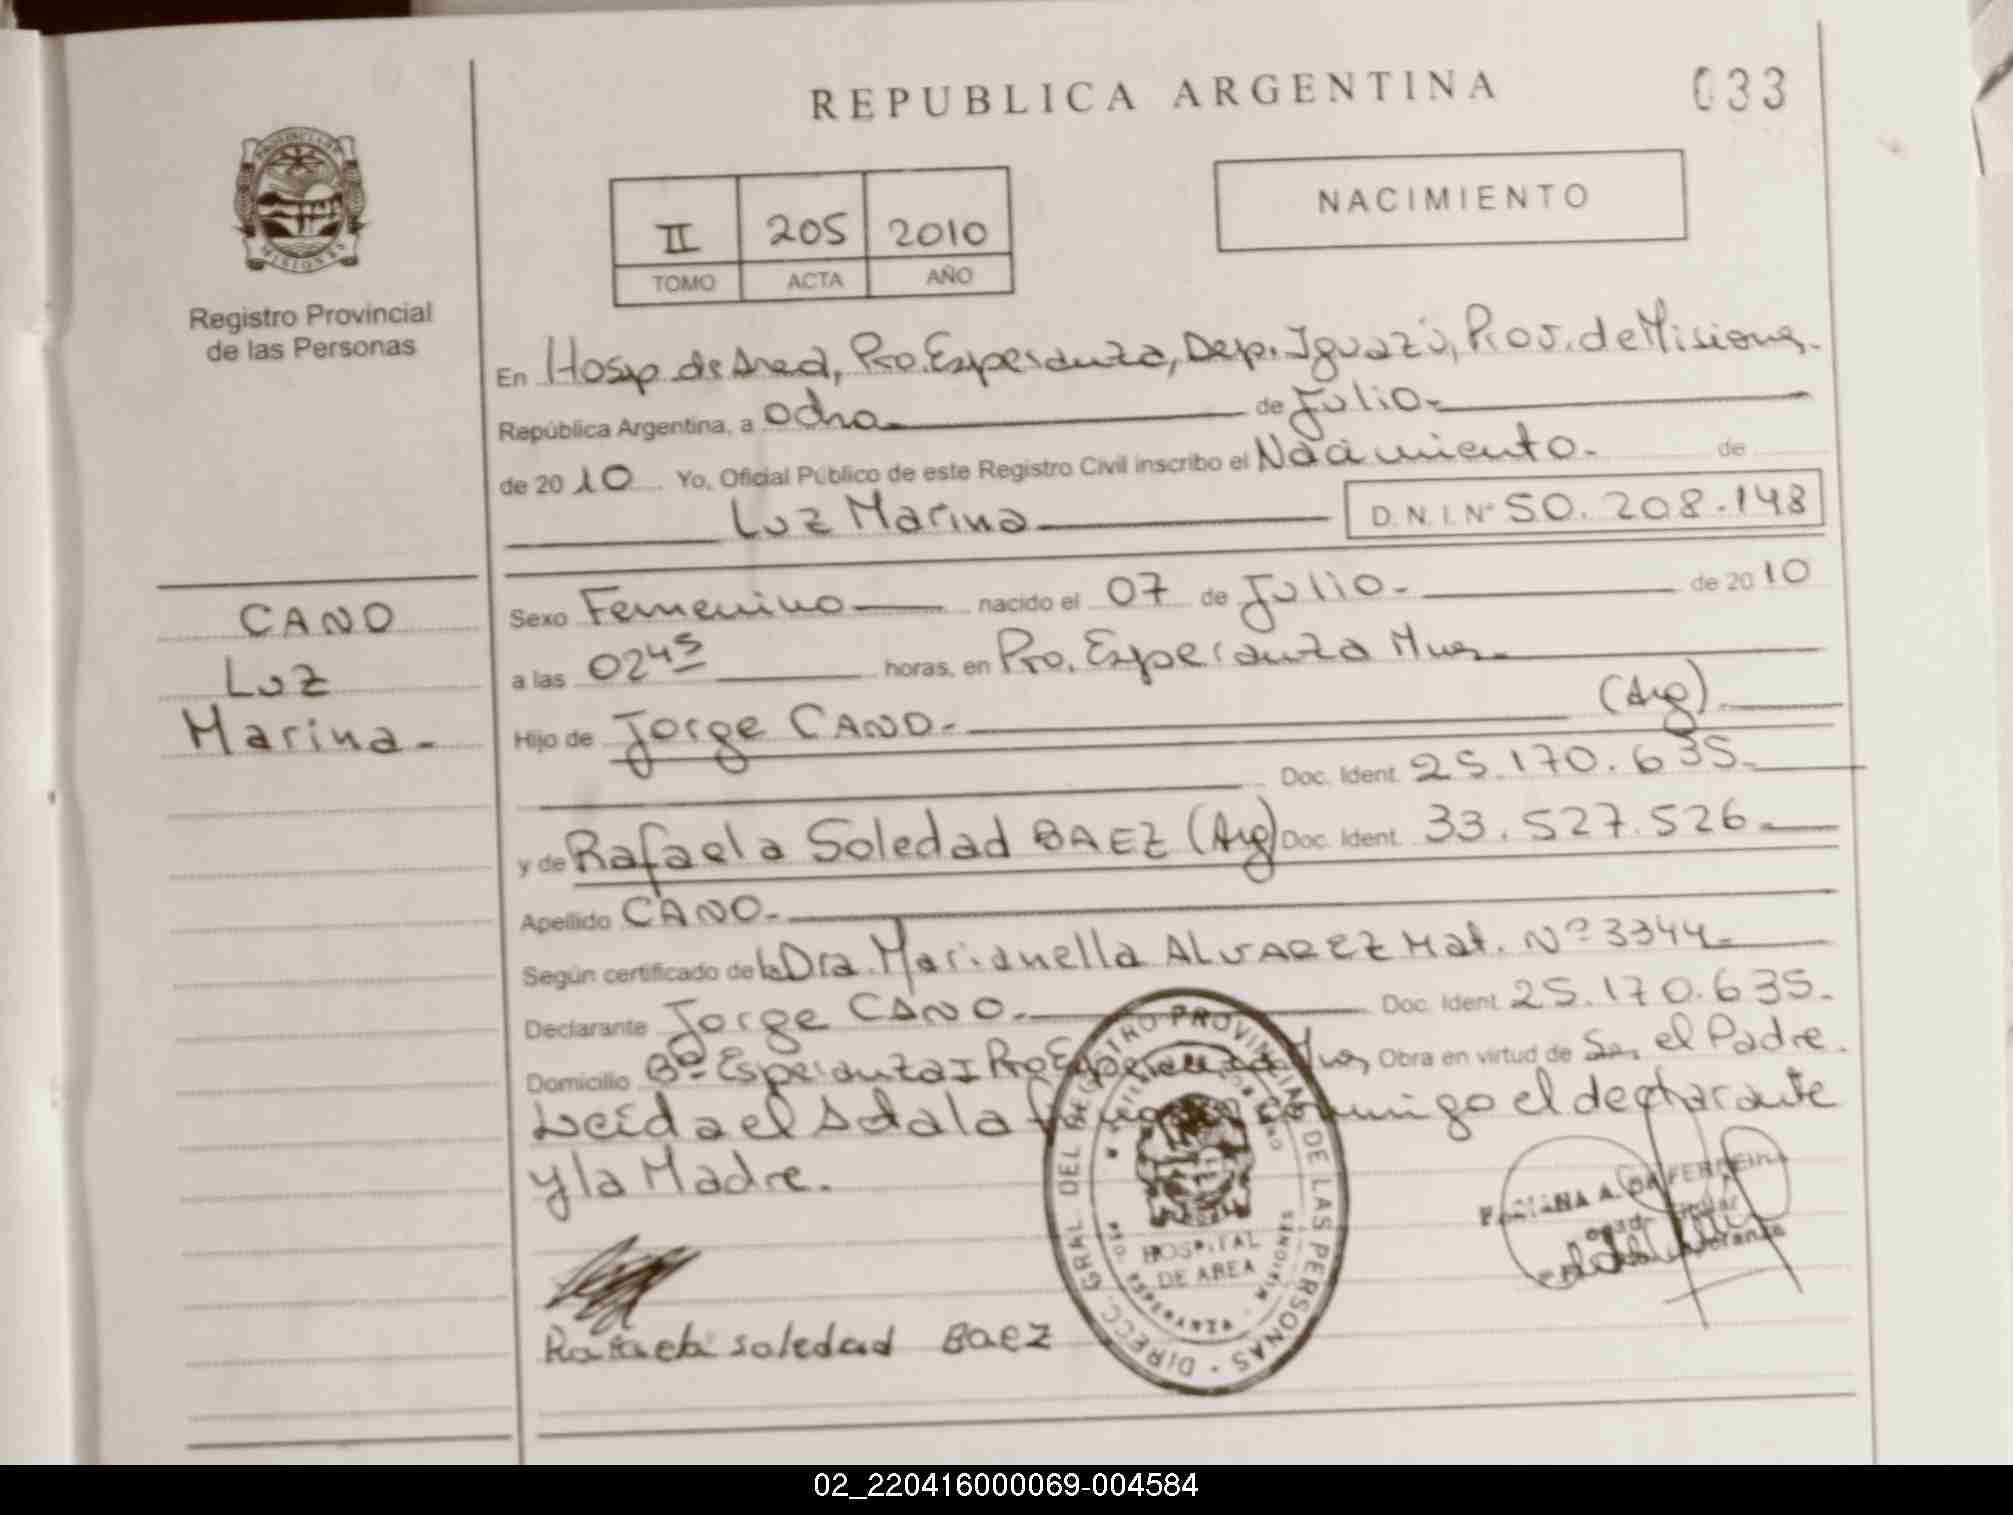 REPUBLICA ARGENTINA
033
PROVINCIA DE
MISIONES
Registro Provincial
de las Personas
II 205 2010
TOMO ACTA AÑO
NACIMIENTO
En Hosp de Area, Pto. Esperanza, Dep. Iguazú, Prov. de Misiones.
República Argentina, a ocho de Julio.
de 2010 Yo, Oficial Público de este Registro Civil inscribo el Nacimiento. de
Luz Marina D.N.I. Nº 50.208.148
CANO
Luz
Marina.
Sexo Femenino nacido el 07 de Julio. de 2010
a las 0245 horas, en Pto. Esperanza Mnes.
Hijo de Jorge CANO. (Arg).
Doc. Ident. 25.170.635.
y de Rafaela Soledad BAEZ (Arg) Doc. Ident. 33.527.526
Apellido CANO.
Según certificado de la Dra. Marianella ALVAREZ Mat. Nº 3344.
Declarante Jorge CANO. Doc. Ident. 25.170.635.
Domicilio Bº Esperanza I Pto Esperanza Mnes Obra en virtud de Ser el Padre.
Leída el Acta la conmigo el declarante
y la Madre.
DIRECC. GRAL. DEL REGISTRO PROVINCIAL DE LAS PERSONAS
HOSPITAL
DE AREA
PTO. ESPERANZA MISIONES
Rafaela Soledad Baez
02_220416000069-004584